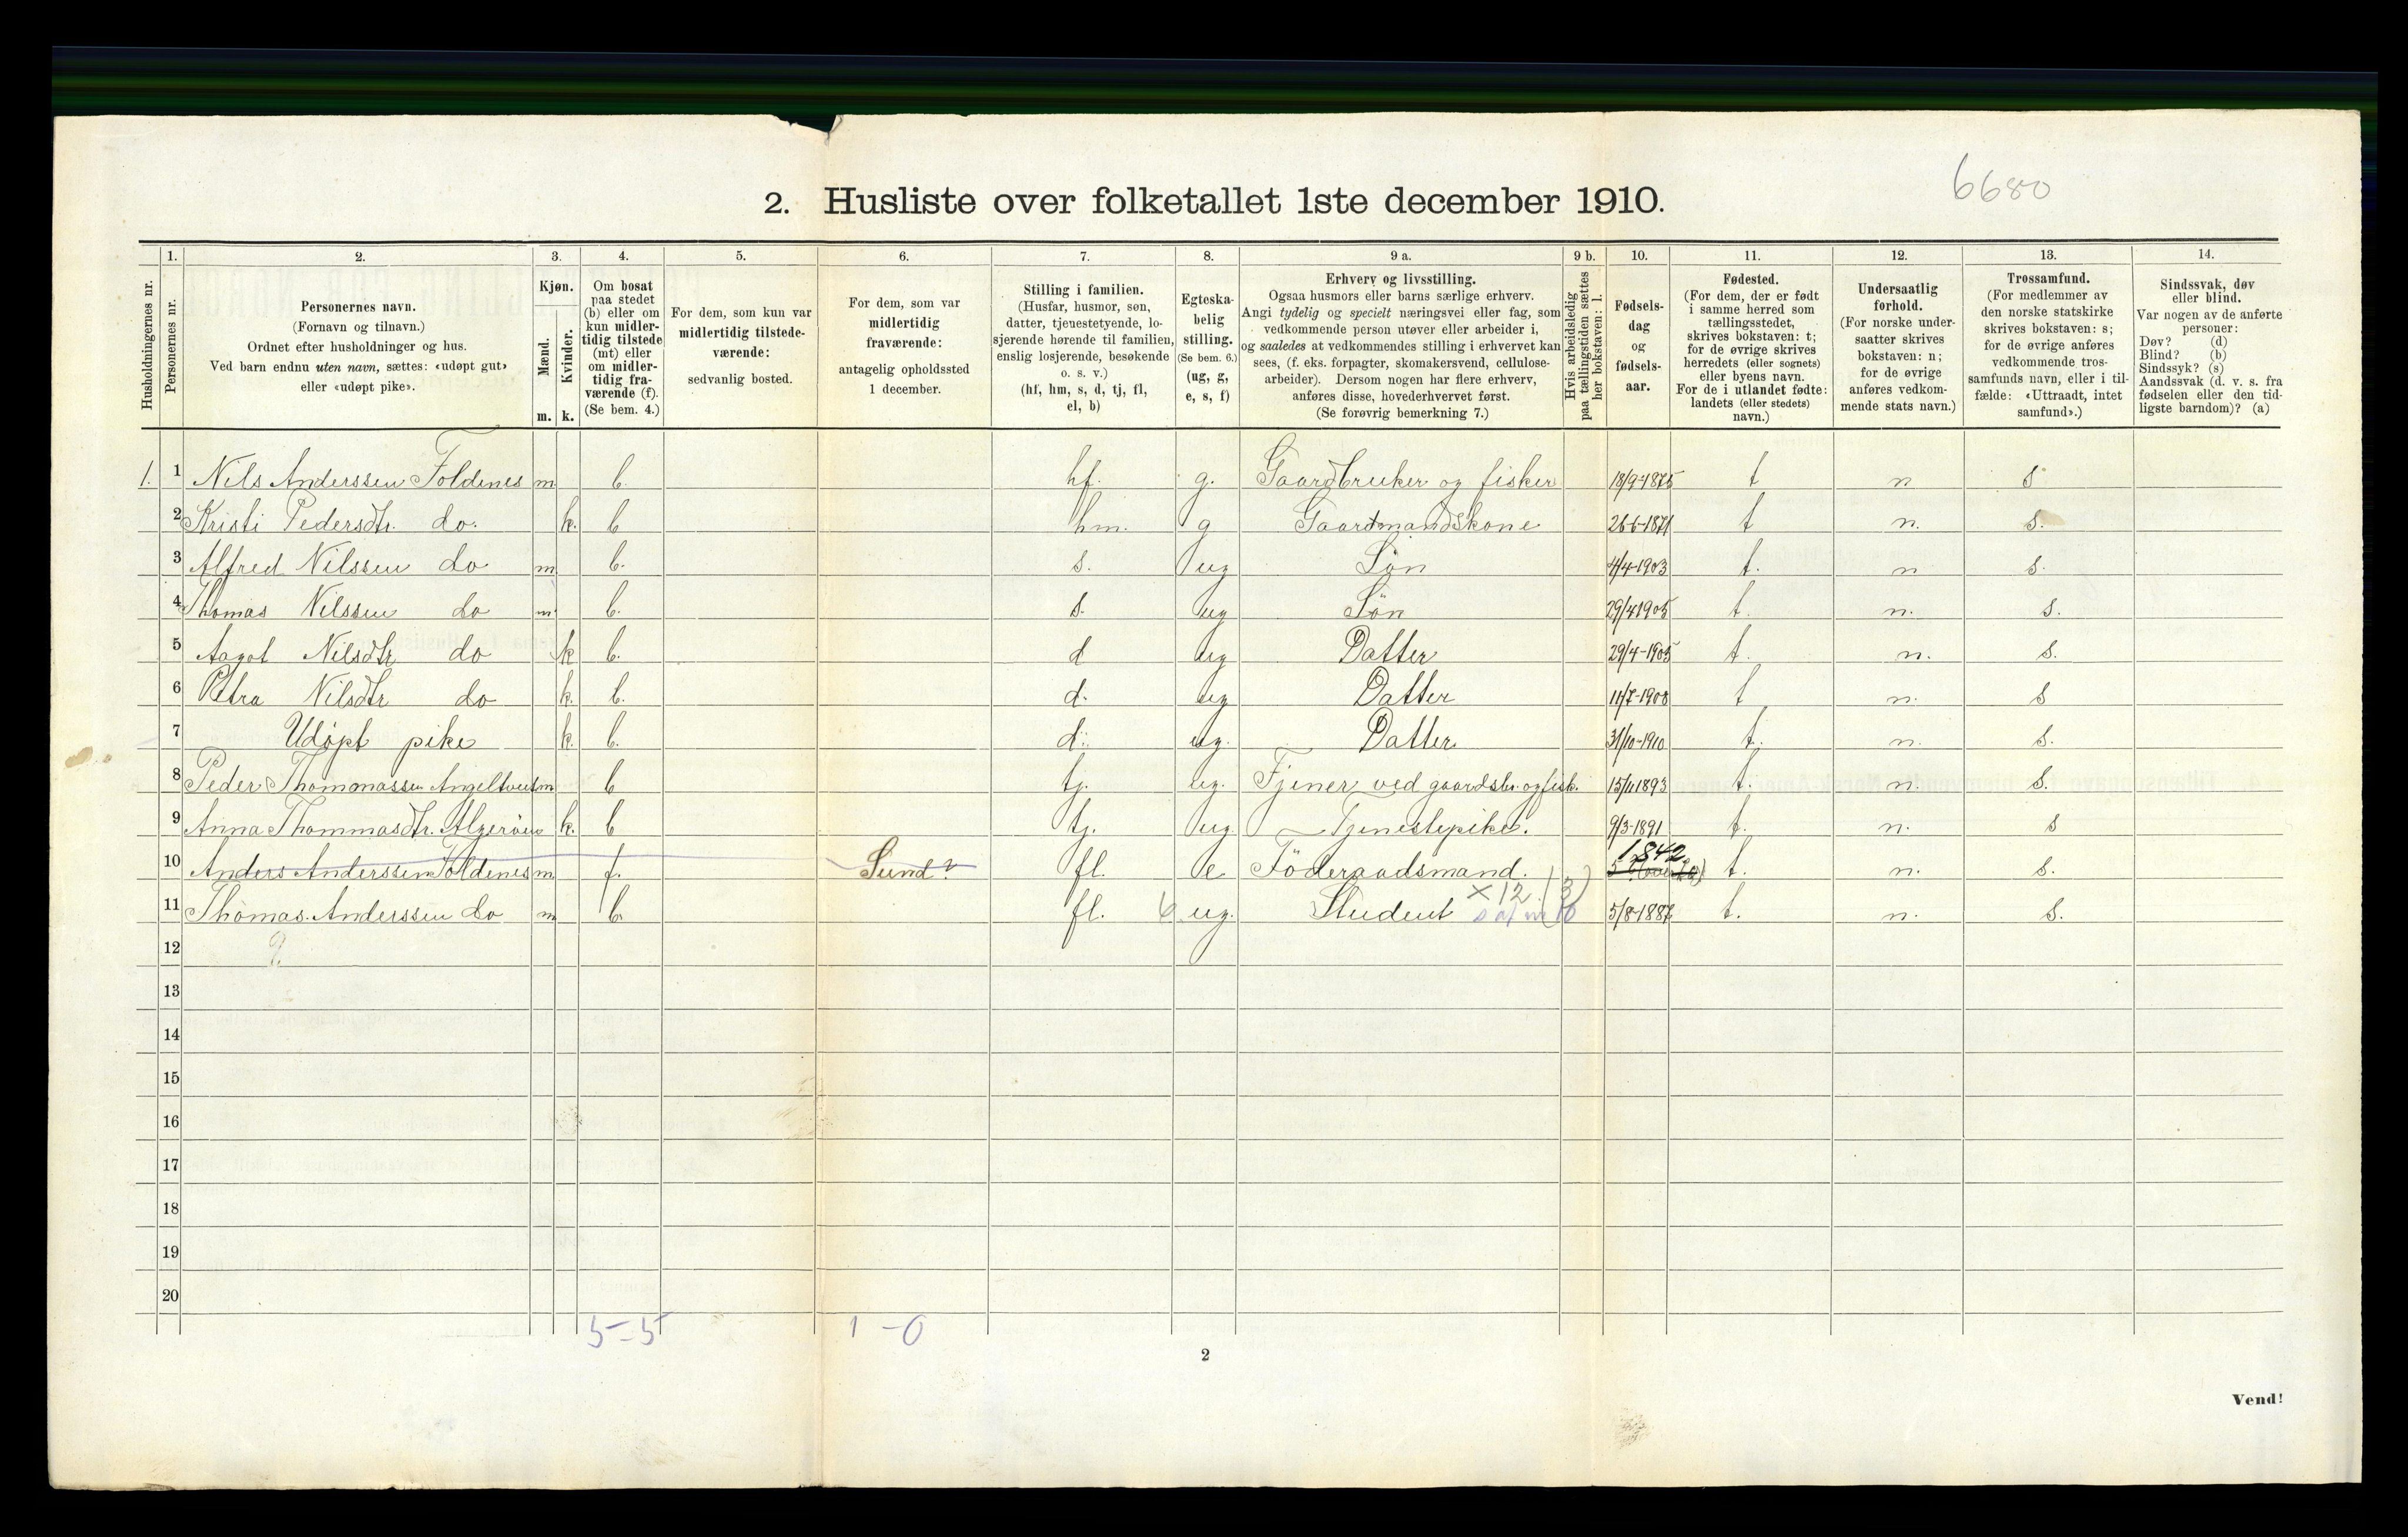 6680
2. Husliste over folketallet 1ste december 1910.
Husholdningernes nr.
1.
Personernes nr.
2.
Personernes navn.
(Fornavn og tilnavn.)
Ordnet efter husholdninger og hus.
Ved barn endnu uten navn, sættes: «udøpt gut»
eller «udøpt pike».
3.
Kjøn.
Mænd.
m.
Kvinder.
k.
4.
Om bosat
paa stedet
(b) eller om
kun midler-
tidig tilstede
(mt) eller
om midler-
tidig fra-
værende (f).
(Se bem. 4.)
5.
For dem, som kun var
midlertidig tilstede-
værende:
sedvanlig bosted.
6.
For dem, som var
midlertidig
fraværende:
antagelig opholdssted
1 december.
7.
Stilling i familien.
(Husfar, husmor, søn,
datter, tjenestetyende, lo-
sjerende hørende til familien,
enslig losjerende, besøkende
o. s. v.)
(hf, hm, s, d, tj, fl,
el, b)
8.
Egteska-
belig
stilling.
(Se bem. 6.)
(ug, g,
e, s, f)
9 a.
Erhverv og livsstilling.
Ogsaa husmors eller barns særlige erhverv.
Angi tydelig og specielt næringsvei eller fag, som
vedkommende person utøver eller arbeider i,
og saaledes at vedkommendes stilling i erhvervet kan
sees, (f. eks. forpagter, skomakersvend, cellulose-
arbeider). Dersom nogen har flere erhverv,
anføres disse, hovederhvervet først.
(Se forøvrig bemerkning 7.)
9 b.
Hvis arbeidsledig
paa tællingstiden sættes
her bokstaven: l.
10.
Fødsels-
dag
og
fødsels-
aar.
11.
Fødested.
(For dem, der er født
i samme herred som
tællingsstedet,
skrives bokstaven: t;
for de øvrige skrives
herredets (eller sognets)
eller byens navn.
For de i utlandet fødte:
landets (eller stedets)
navn.)
12.
Undersaatlig
forhold.
(For norske under-
saatter skrives
bokstaven: n;
for de øvrige
anføres vedkom-
mende stats navn.)
13.
Trossamfund.
(For medlemmer av
den norske statskirke
skrives bokstaven: s;
for de øvrige anføres
vedkommende tros-
samfunds navn, eller i til-
fælde: «Uttraadt, intet
samfund».)
14.
Sindssvak, døv
eller blind.
Var nogen av de anførte
personer:
Døv? (d)
Blind? (b)
Sindssyk? (s)
Aandssvak (d. v. s. fra
fødselen eller den tid-
ligste barndom)? (a)
1. 1 Nils Anderssen Foldenes m b. hf. g. Gaardbruker og fisker 18/9-1875 t n s
2 Kristi Pedersdtr. do. k. b hm. g Gaardmandskone 26-6-1871 t n. s.
3 Alfred Nilssen do m b. s. ug Søn 4/4-1903 t. n s.
4 Thomas Nilssen do m b. s. ug Søn 29/4 1905 t. n. s.
5 Aagot Nilsdtr do k b. d ug Datter 29/4-1905 t. n. s.
6 Petra Nilsdtr do k. b. d. ug Datter 11/7-1908 t n. s
7 Udøpt pike k. b. d. ug. Datter 31/10-1910 t. n. s.
8 Peder Thommassen Angeltveit m b tj. ug. Tjener ved gaardsbr. og fisk. 15/11 1893 t. n. s.
9 Anna Thommasdtr. Algerøen k. b tj. ug Tjenestepike. 9/3-1891 t. n. s
10 Anders Anderssen Foldenes m f. Sund? fl. e Föderaadsmand. 1842 t. n. s.
11 Thomas Anderssen do m b. fl. 6 ug. Student × 12 (3) 5/8-1887 t. n. s.
12
13
14
15
16
17
18
19
20
5-5 1-0
2
Vend!